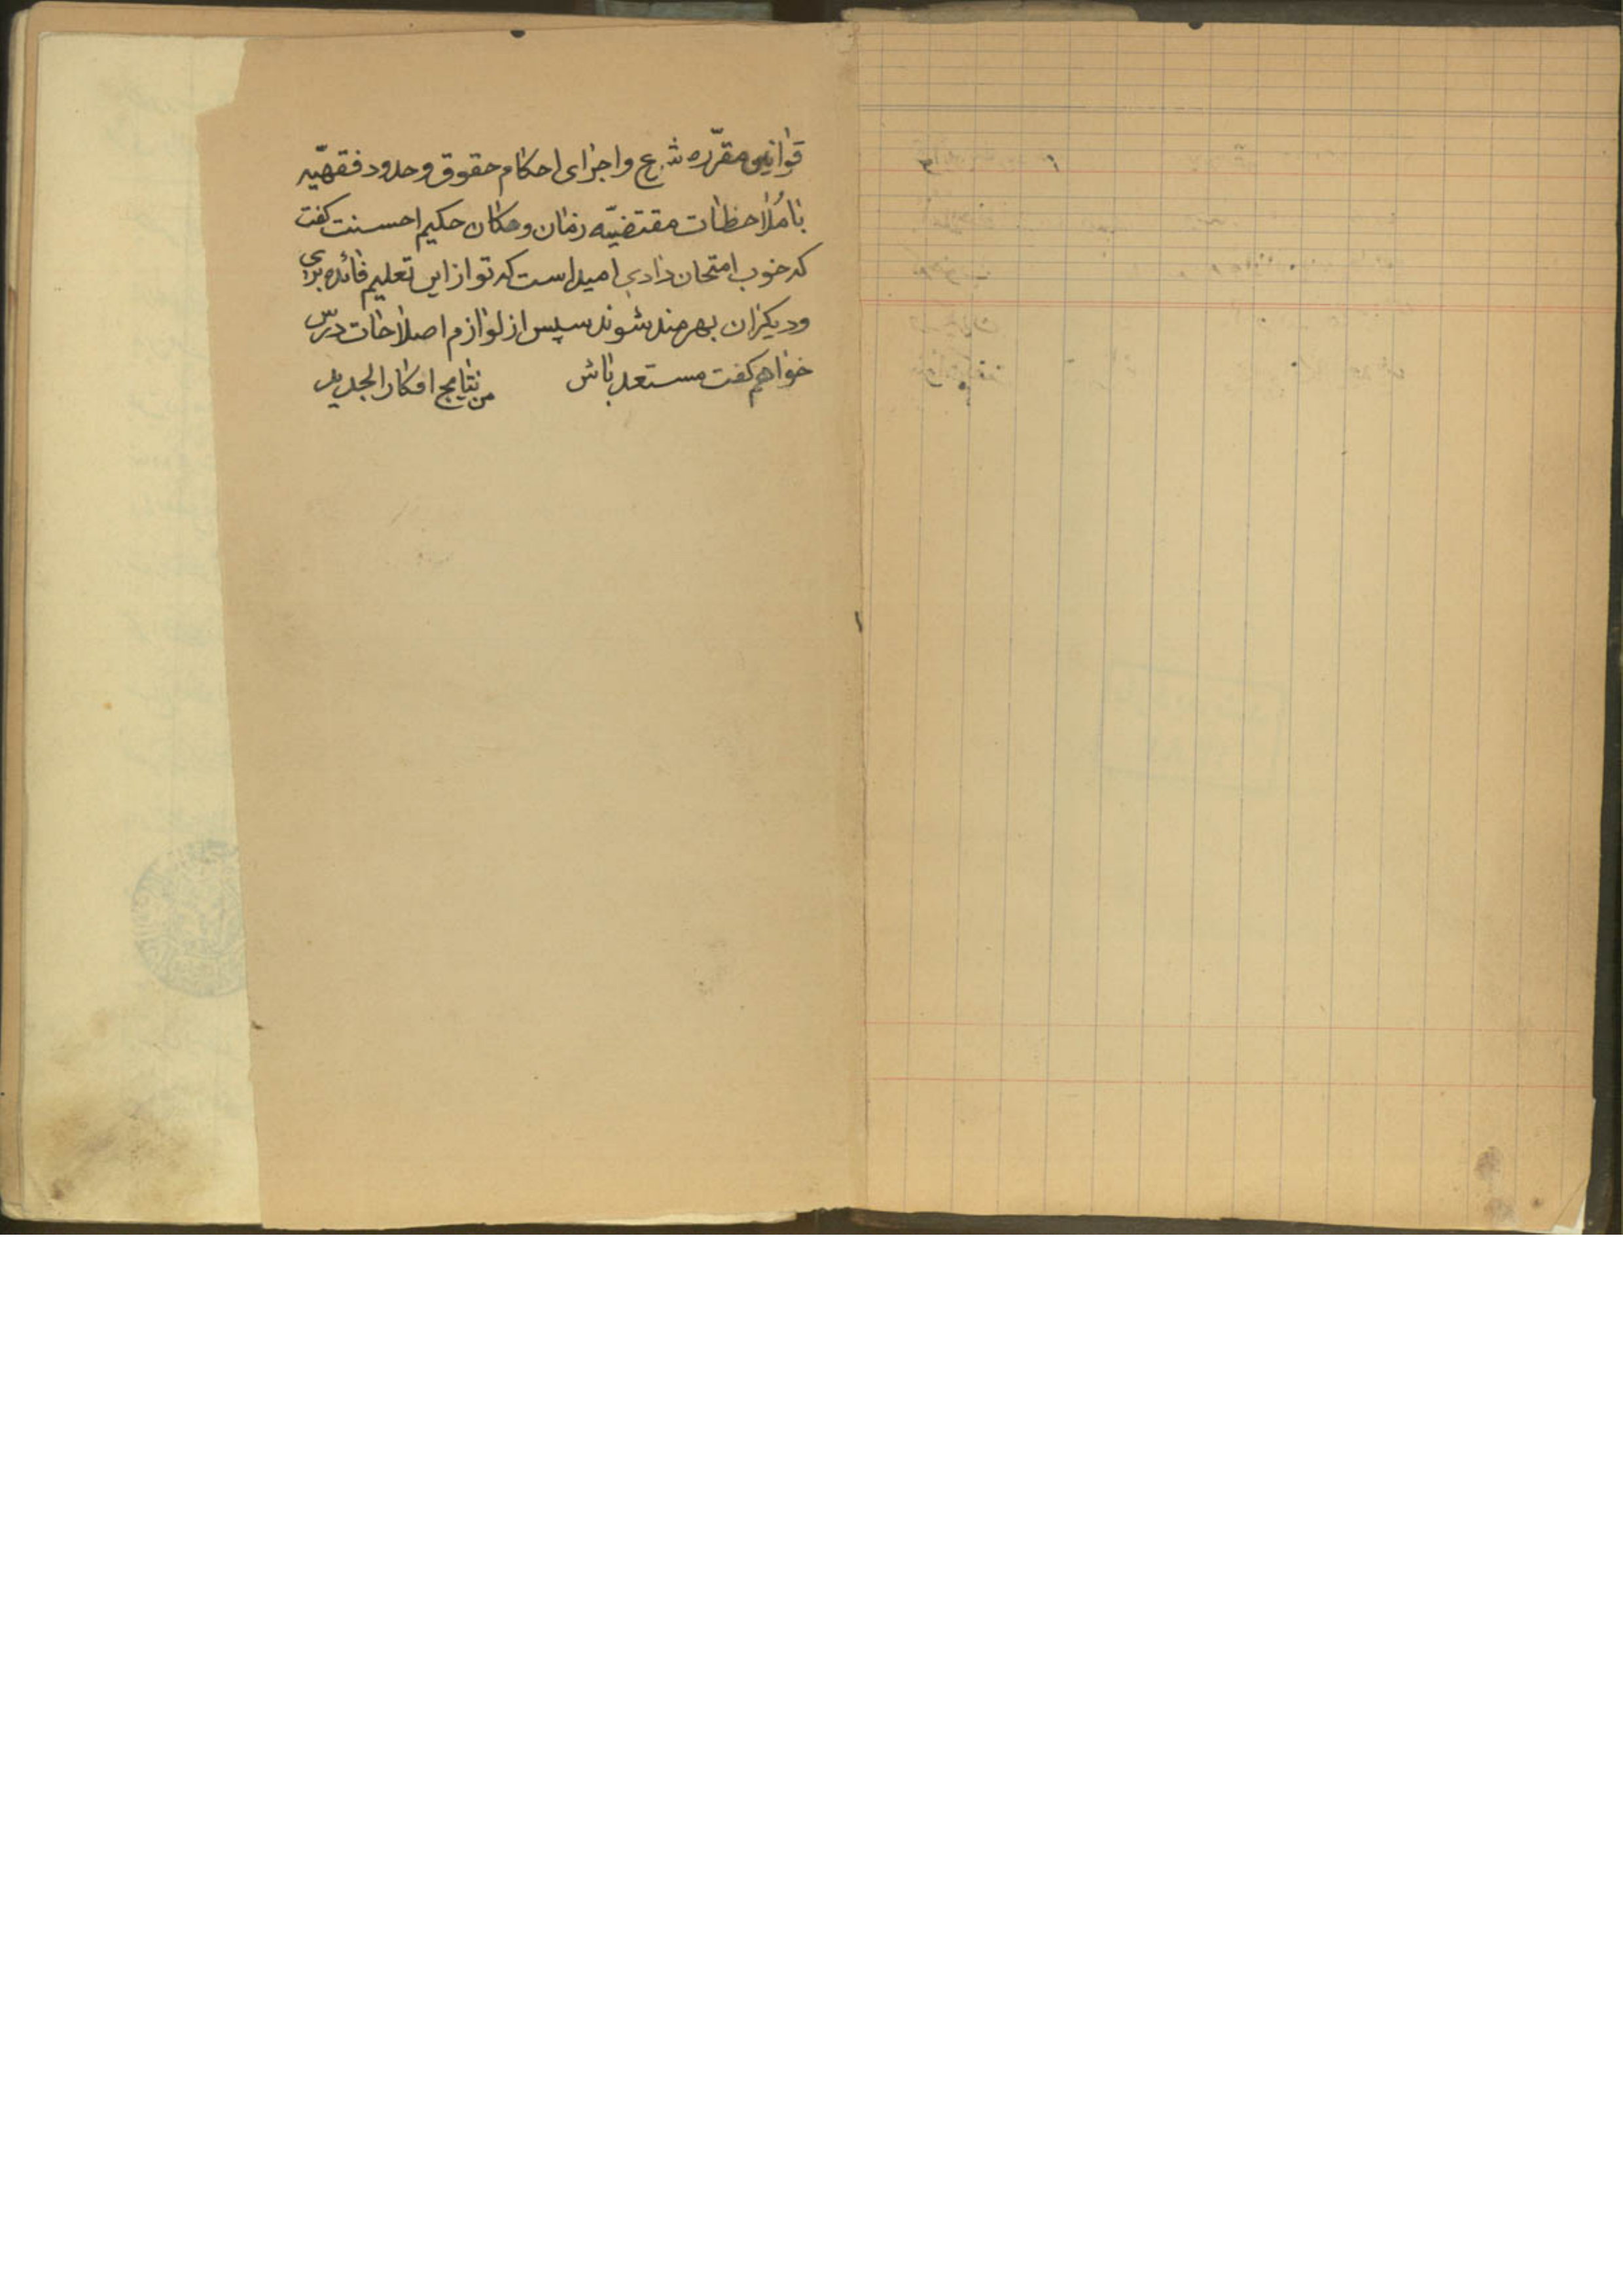 قوانین مقرّره شرع و اجرای احکام حقوق و حدود فقهیّه
با مُلاحظات مقتضیّه زمان و مکان حکیم احسنت کفت
که خوب امتحان دادی امید است که تو از این تعلیم فائده بری
و دیکران بهرمند شوند سپس از لوازم اصلاحات درس
خواهم کفت مستعد باش من نتایج افکار الجدید